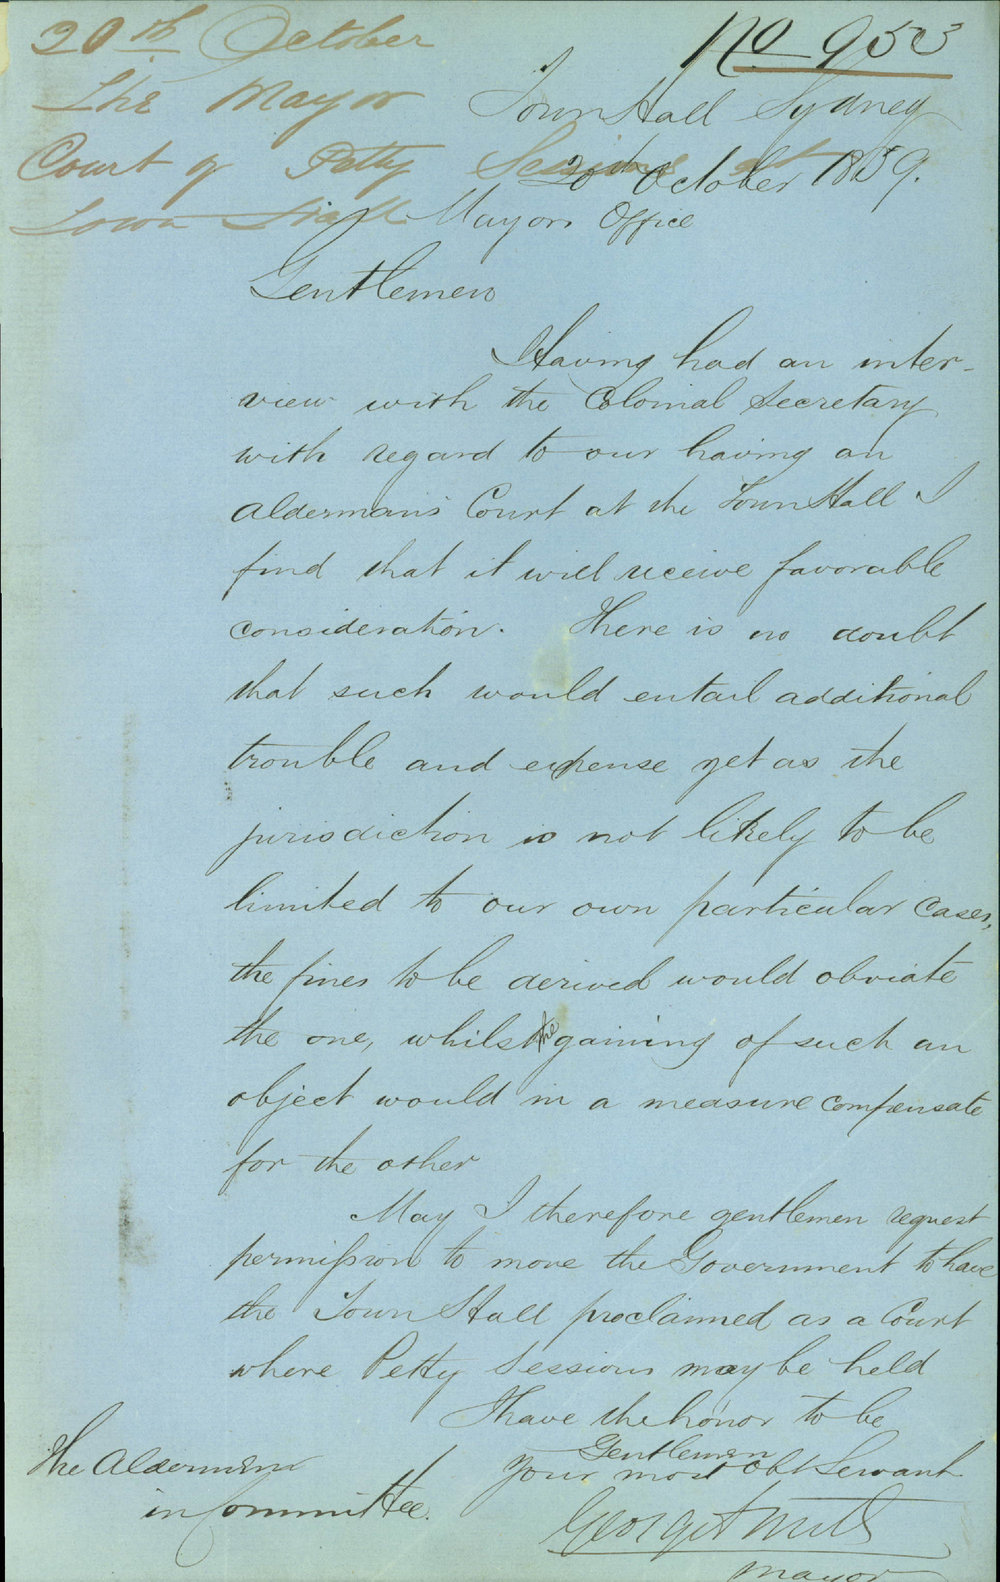 20th October
The Mayor
Court of Petty Sessions at
Town Hall
No 953
Town Hall Sydney
20th October 1859.
Mayors Office
Gentlemen
Having had an inter-
view with the Colonial Secretary
with regard to our having an
Alderman's Court at the Town Hall I
find that it will receive favorable
consideration. There is no doubt
that such would entail additional
trouble and expense yet as the
jurisdiction is not likely to be
limited to our own particular cases,
the fines to be derived would obviate
the one, whilst the gaining of such an
object would in a measure compensate
for the other
May I therefore gentlemen request
permission to move the Government to have
the Town Hall proclaimed as a Court
where Petty Sessions may be held
I have the honor to be
Gentlemen
Your most Obt Servant
George Smith
Mayor
The Aldermen
in Committee.